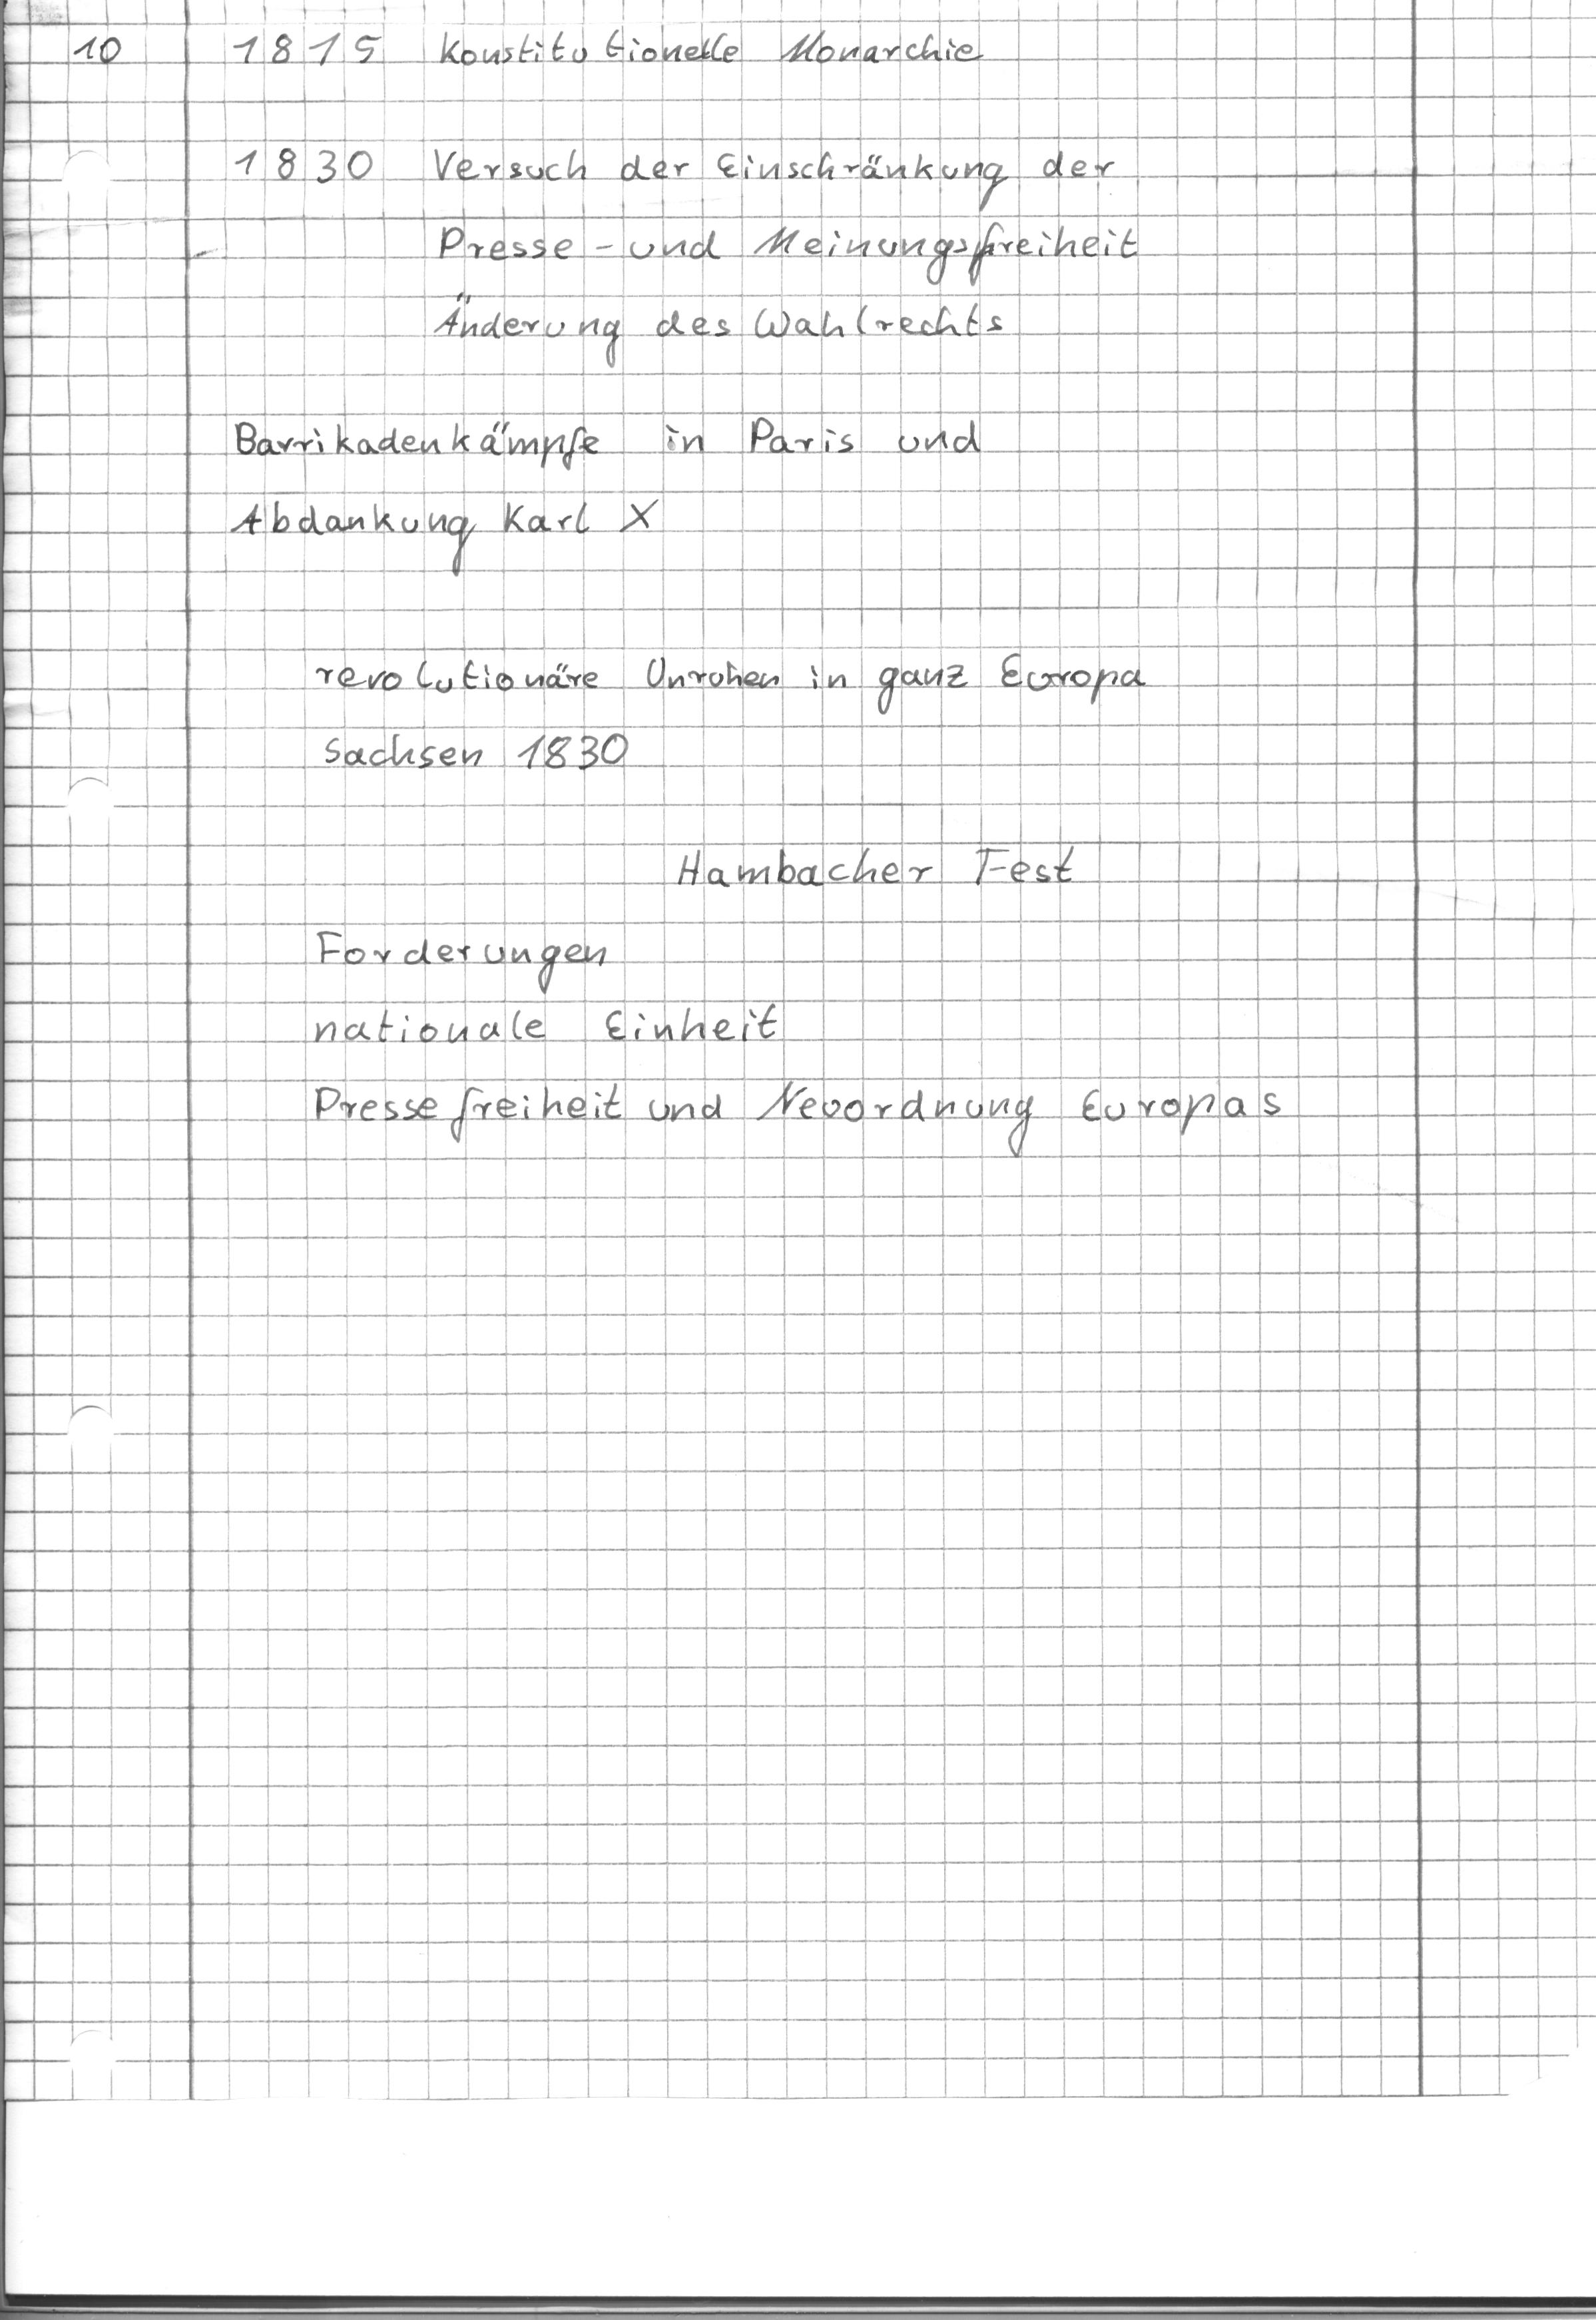 10 1815 Konstitutionelle Monarchie
1830 Versuch der Einschränkung der
Presse - und Meinungsfreiheit
Änderung des Wahlrechts
Barrikadenkämpfe in Paris und
Abdankung Karl X
revolutionäre Unruhen in ganz Europa
Sachsen 1830
Hambacher Fest
Forderungen
nationale Einheit
Pressefreiheit und Neuordnung Europas